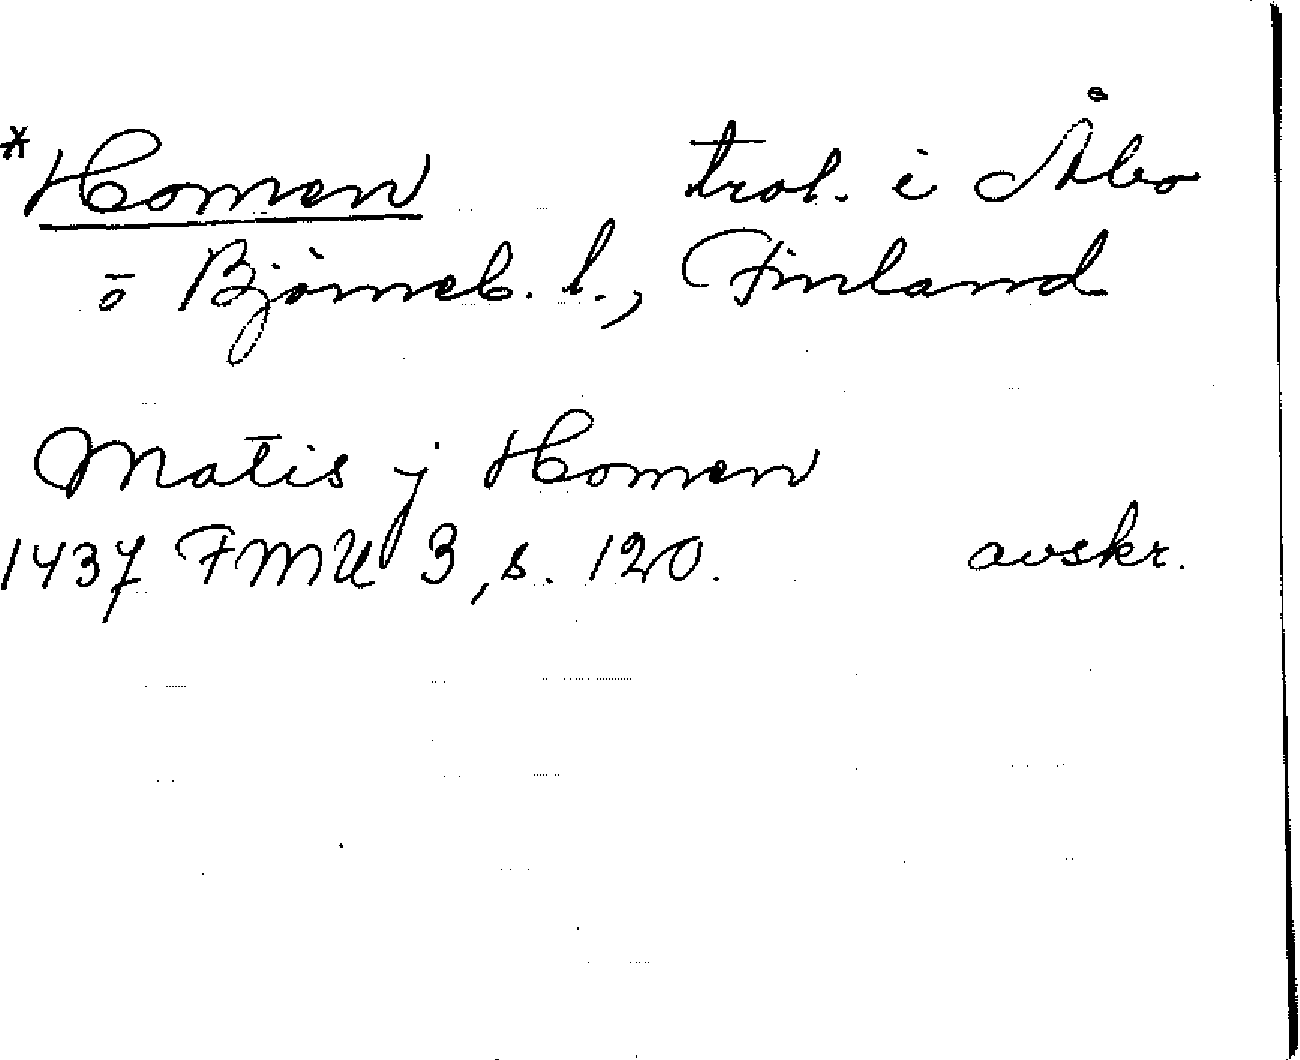 *Homen trol. i Åbo
o Björneb. l., Finland
Matis j Homen
1437 FMU 3, s. 120. avskr.